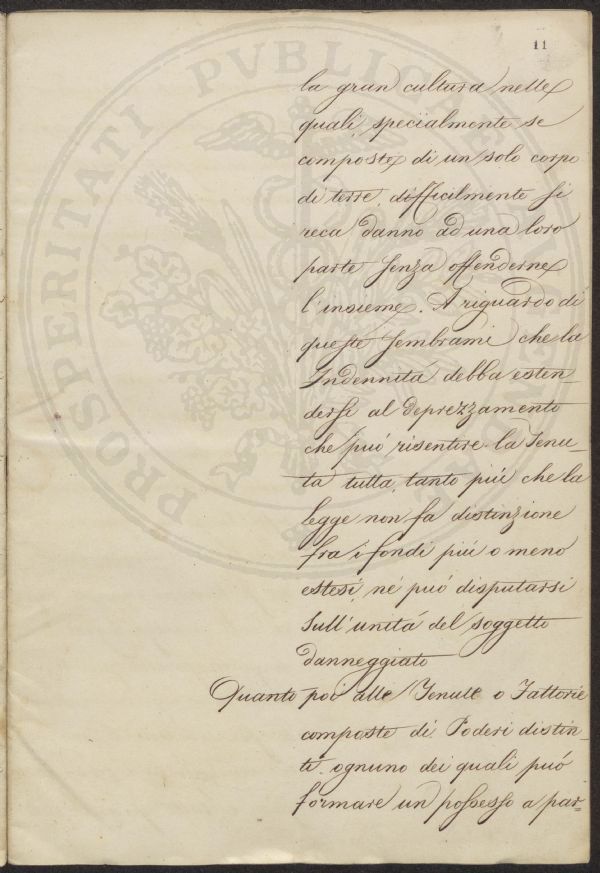 11
la gran cultura nelle
quali, specialmente se
composte di un solo corpo
di terre, difficilmente si
reca danno ad una loro
parte senza offenderne
l'insieme. A riguardo di
queste sembrami che la
Indennità debba esten-
dersi al deprezzamento
che può risentire la Tenu-
ta tutta, tanto più che la
legge non fa distinzione
fra i fondi più o meno
estesi, né può disputarsi
sull'unitá del soggetto
danneggiato
Quanto poi alle Tenute o Fattorie
composte di Poderi distin-
ti ognuno dei quali può
formare un possesso a par=
PROSPERITATI PVBLICAE